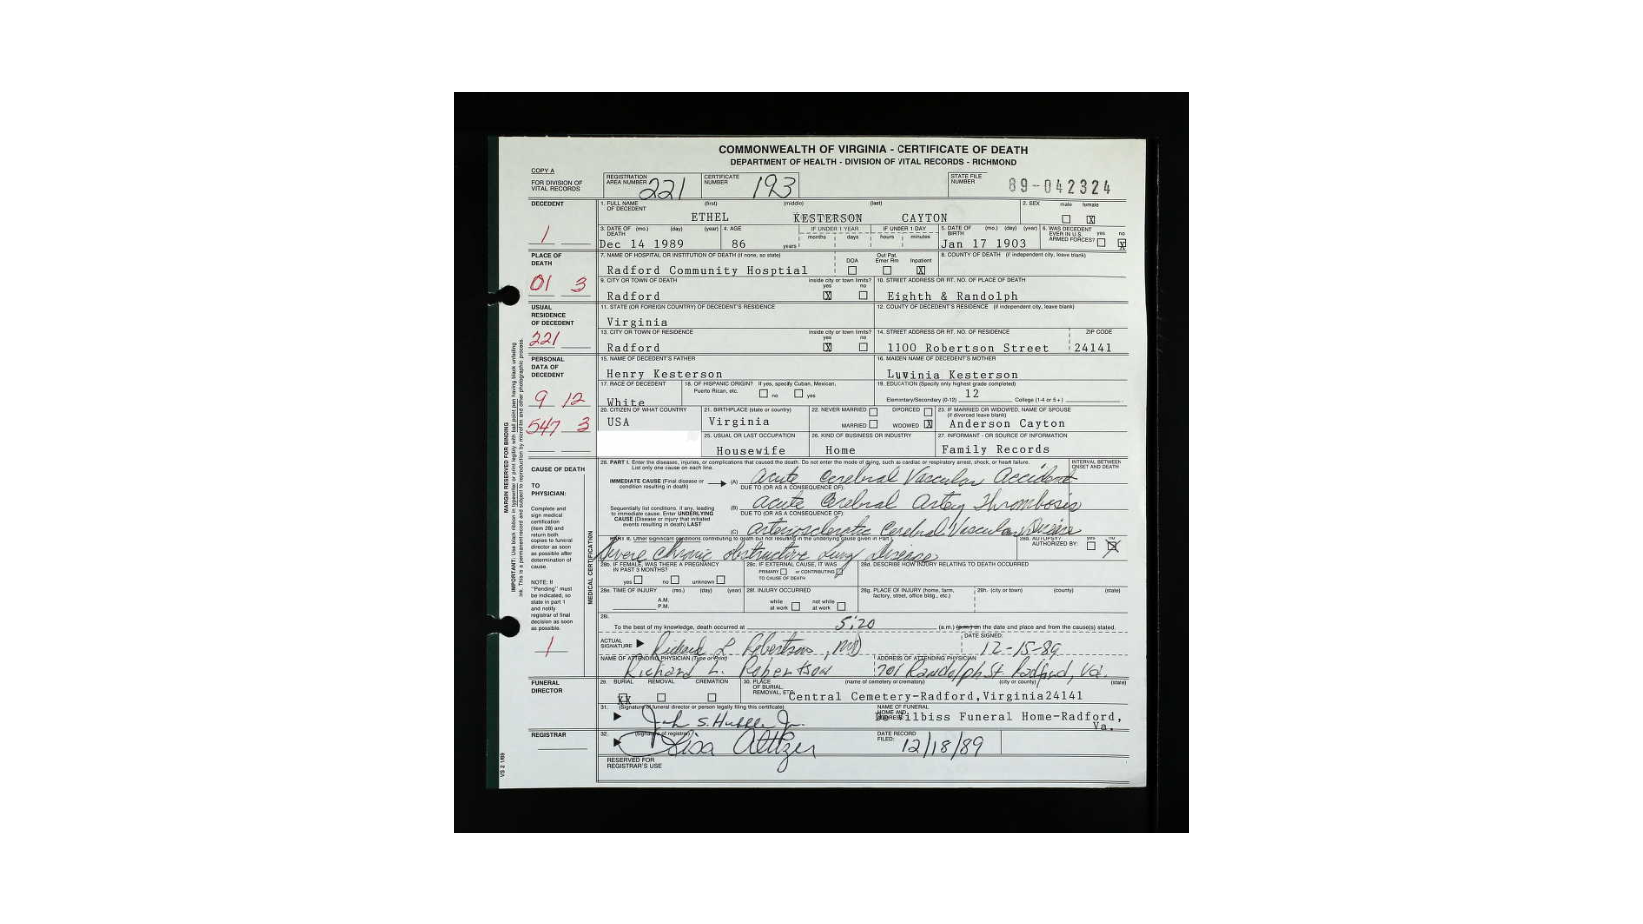 COMMONWEALTH OF VIRGINIA - CERTIFICATE OF DEATH
DEPARTMENT OF HEALTH - DIVISION OF VITAL RECORDS - RICHMOND
COPY A
FOR DIVISION OF VITAL RECORDS
REGISTRATION AREA NUMBER 221
CERTIFICATE NUMBER 193
STATE FILE NUMBER 89-042324
DECEDENT
1
1. FULL NAME OF DECEDENT (first) (middle) (last)
ETHEL KESTERSON CAYTON
2. SEX male female X
3. DATE OF DEATH (mo.) (day) (year)
Dec 14 1989
4. AGE 86 years
IF UNDER 1 YEAR months days
IF UNDER 1 DAY hours minutes
5. DATE OF BIRTH (mo.) (day) (year)
Jan 17 1903
6. WAS DECEDENT EVER IN U.S. ARMED FORCES? yes no X
PLACE OF DEATH
01 3
7. NAME OF HOSPITAL OR INSTITUTION OF DEATH (if none, so state)
Radford Community Hosptial
DOA Out Pat. Emer Rm Inpatient X
8. COUNTY OF DEATH (if independent city, leave blank)
9. CITY OR TOWN OF DEATH inside city or town limits? yes no
Radford X
10. STREET ADDRESS OR RT. NO. OF PLACE OF DEATH
Eighth & Randolph
USUAL RESIDENCE OF DECEDENT
221
11. STATE (OR FOREIGN COUNTRY) OF DECEDENT'S RESIDENCE
Virginia
12. COUNTY OF DECEDENT'S RESIDENCE (if independent city, leave blank)
13. CITY OR TOWN OF RESIDENCE inside city or town limits? yes no
Radford X
14. STREET ADDRESS OR RT. NO. OF RESIDENCE ZIP CODE
1100 Robertson Street 24141
PERSONAL DATA OF DECEDENT
9 12
547 3
15. NAME OF DECEDENT'S FATHER
Henry Kesterson
16. MAIDEN NAME OF DECEDENT'S MOTHER
Luvinia Kesterson
17. RACE OF DECEDENT
White
18. OF HISPANIC ORIGIN? If yes, specify Cuban, Mexican, Puerto Rican, etc. no yes
19. EDUCATION (Specify only highest grade completed)
12
Elementary/Secondary (0-12) College (1-4 or 5+)
20. CITIZEN OF WHAT COUNTRY
USA
21. BIRTHPLACE (state or country)
Virginia
22. NEVER MARRIED DIVORCED
MARRIED WIDOWED X
23. IF MARRIED OR WIDOWED, NAME OF SPOUSE (if divorced leave blank)
Anderson Cayton
25. USUAL OR LAST OCCUPATION
Housewife
26. KIND OF BUSINESS OR INDUSTRY
Home
27. INFORMANT - OR SOURCE OF INFORMATION
Family Records
MARGIN RESERVED FOR BINDING
CAUSE OF DEATH
TO PHYSICIAN:
Complete and sign medical certification (item 28) and return both copies to funeral director as soon as possible after determination of cause.
NOTE: If "Pending" must be indicated, so state in part 1 and notify registrar of final decision as soon as possible.
1
MEDICAL CERTIFICATION
28. PART I. Enter the diseases, injuries, or complications that caused the death. Do not enter the mode of dying, such as cardiac or respiratory arrest, shock, or heart failure.
List only one cause on each line.
INTERVAL BETWEEN ONSET AND DEATH
IMMEDIATE CAUSE (Final disease or condition resulting in death)
(A) Acute Cerebral Vascular Accident
DUE TO (OR AS A CONSEQUENCE OF):
Sequentially list conditions, if any, leading to immediate cause. Enter UNDERLYING CAUSE (Disease or injury that initiated events resulting in death) LAST
(B) acute Cerebral Artery Thrombosis
DUE TO (OR AS A CONSEQUENCE OF):
(C) arteriosclerotic Cerebral Vascular Disease
PART II. Other significant conditions contributing to death but not resulting in the underlying cause given in Part I
Severe Chronic obstructive Lung Disease
28a. AUTOPSY AUTHORIZED BY: yes no X
28b. IF FEMALE, WAS THERE A PREGNANCY IN PAST 3 MONTHS? yes no unknown
28c. IF EXTERNAL CAUSE, IT WAS PRIMARY or CONTRIBUTING TO CAUSE OF DEATH
28d. DESCRIBE HOW INJURY RELATING TO DEATH OCCURRED
28e. TIME OF INJURY (mo.) (day) (year) A.M. P.M.
28f. INJURY OCCURRED while at work not while at work
28g. PLACE OF INJURY (home, farm, factory, street, office bldg., etc.)
28h. (city or town) (county) (state)
To the best of my knowledge, death occurred at 5:20 (a.m.) (p.m.) on the date and place and from the cause(s) stated.
ACTUAL SIGNATURE Richard L. Robertson, MD
DATE SIGNED:
12-15-89
NAME OF ATTENDING PHYSICIAN (Type or Print)
Richard L. Robertson
ADDRESS OF ATTENDING PHYSICIAN
701 Randolph St. Radford, Va.
FUNERAL DIRECTOR
29. BURIAL REMOVAL CREMATION
XX
30. PLACE OF BURIAL, REMOVAL, ETC. (name of cemetery or crematory) (city or county) (state)
Central Cemetery-Radford,Virginia24141
31. (signature of funeral director or person legally filing this certificate)
NAME OF FUNERAL HOME AND ADDRESS
Funeral Home-Radford, Va.
REGISTRAR
32. (signature of registrar)
Lisa Altizer
DATE RECORD FILED: 12/18/89
RESERVED FOR REGISTRAR'S USE